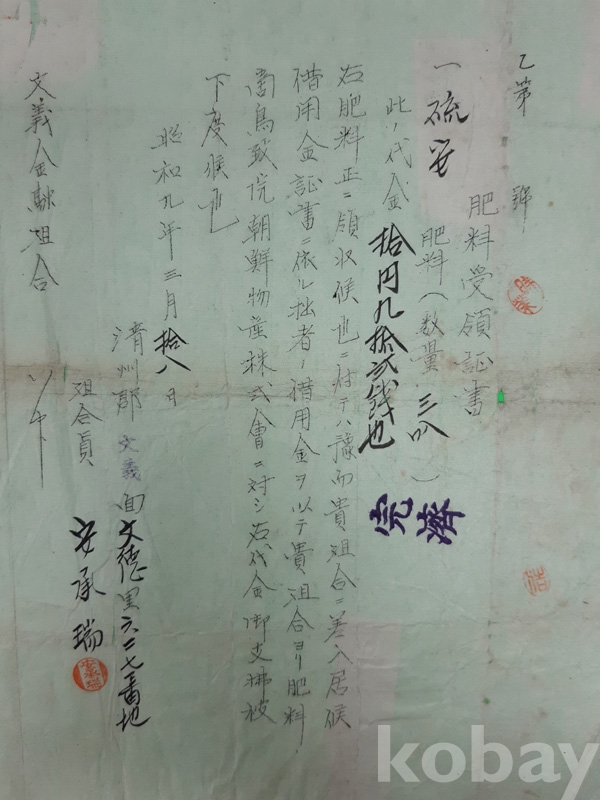 乙第 號
肥料受領証書
一硫安肥料(数量 三叺 )
此ノ代金拾円九拾弐銭也
完濟
右肥料正ニ領収候也ニ対テハ豫而貴組合ニ差入居候
借用金証書ニ依ル拙者ノ借用金ヲ以テ貴組合ヨリ肥料
鳥致院朝鮮物産株式會ニ対シ右代金御支拂被
下度候也
昭和九年三月拾八日
清州郡文義面文德里六二七番地
組合員 安承瑞
文義金融組合
kobay